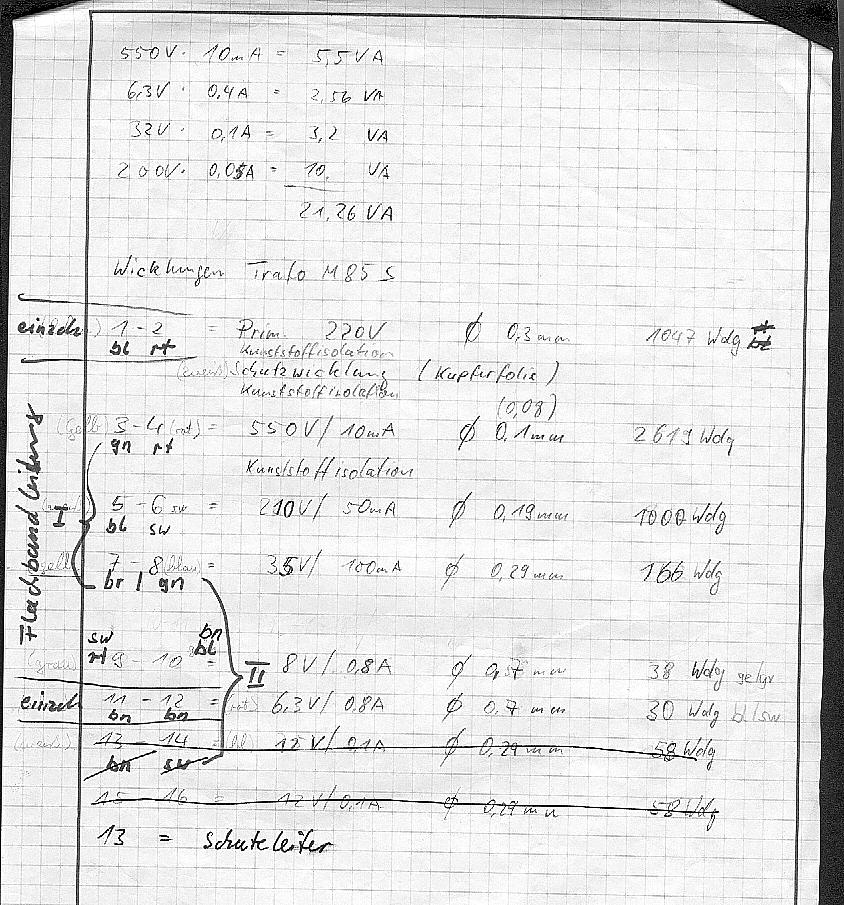 550V · 10mA = 5,5 VA
6,3V · 0,4A = 2,56 VA
32V · 0,1A = 3,2 VA
200V · 0,05A = 10, VA
21,26 VA
Wicklungen Trafo M85 S
einzeln 1 - 2 = Prim. 220V Ø 0,3 mm 1047 Wdg
bl rt Kunststoffisolation
Schutzwicklung (Kupferfolie)
Kunststoffisolation
(0,08)
(gelb) 3 - 4 (rot) = 550V / 10mA Ø 0,1mm 2619 Wdg
gn rt
Kunststoffisolation
Flachbandleitung I
5 - 6 sw = 210V / 50mA Ø 0,19 mm 1000 Wdg
bl sw
gelb 7 - 8 (blau) = 35V / 100mA Ø 0,29 mm 166 Wdg
br gn
sw bn
rt bl
(grau) 9 - 10 = II 8V / 0,8A Ø 0,57 mm 38 Wdg
einzeln 11 - 12 = (rot) 6,3V / 0,8A Ø 0,7 mm 30 Wdg bl/sw
bn bn
(weiß) 13 - 14 = 12V / 0,1A Ø 0,29 mm 58 Wdg
bn sw
15 16 = 12V / 0,1A Ø 0,29 mm 58 Wdg
13 = Schutzleiter